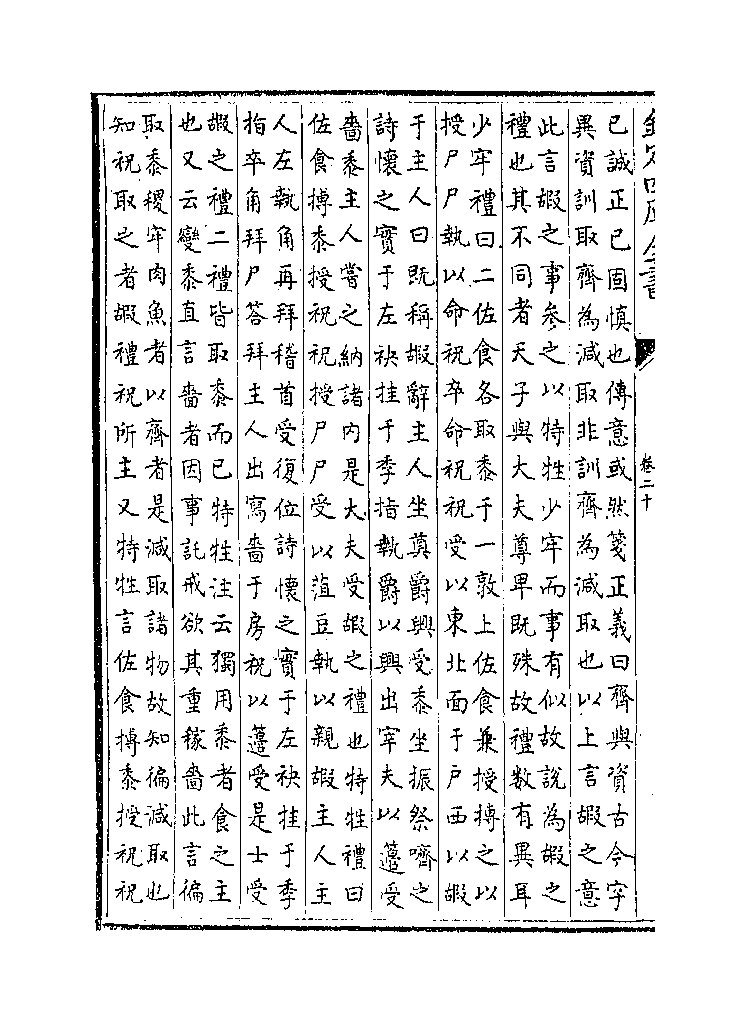 欽定四庫全書
卷二十
已誠正已固慎也傳意或然箋正義曰齊與資古今字
異資訓取齊為減取非訓齊為減取也以上言嘏之意
此言嘏之事參之以特牲少牢而事有似故說為嘏之
禮也其不同者天子與大夫尊卑既殊故禮數有異耳
少牢禮曰二佐食各取黍于一敦上佐食兼授摶之以
授尸尸執以命祝卒命祝祝受以東北面于戶西以嘏
于主人曰既稱嘏辭主人坐奠爵興受黍坐振祭嚌之
詩懷之實于左袂挂于季指執爵以興出宰夫以籩受
嗇黍主人嘗之納諸内是大夫受嘏之禮也特牲禮曰
佐食摶黍授祝祝授尸尸受以菹豆執以親嘏主人主
人左執角再拜稽首受復位詩懷之實于左袂挂于季
指卒角拜尸答拜主人出寫嗇于房祝以籩受是士受
嘏之禮二禮皆取黍而已特牲注云獨用黍者食之主
也又云變黍直言嗇者因事託戒欲其重稼嗇此言徧
取黍稷牢肉魚者以齊者是減取諸物故知徧減取也
知祝取之者嘏禮祝所主又特牲言佐食摶黍授祝祝